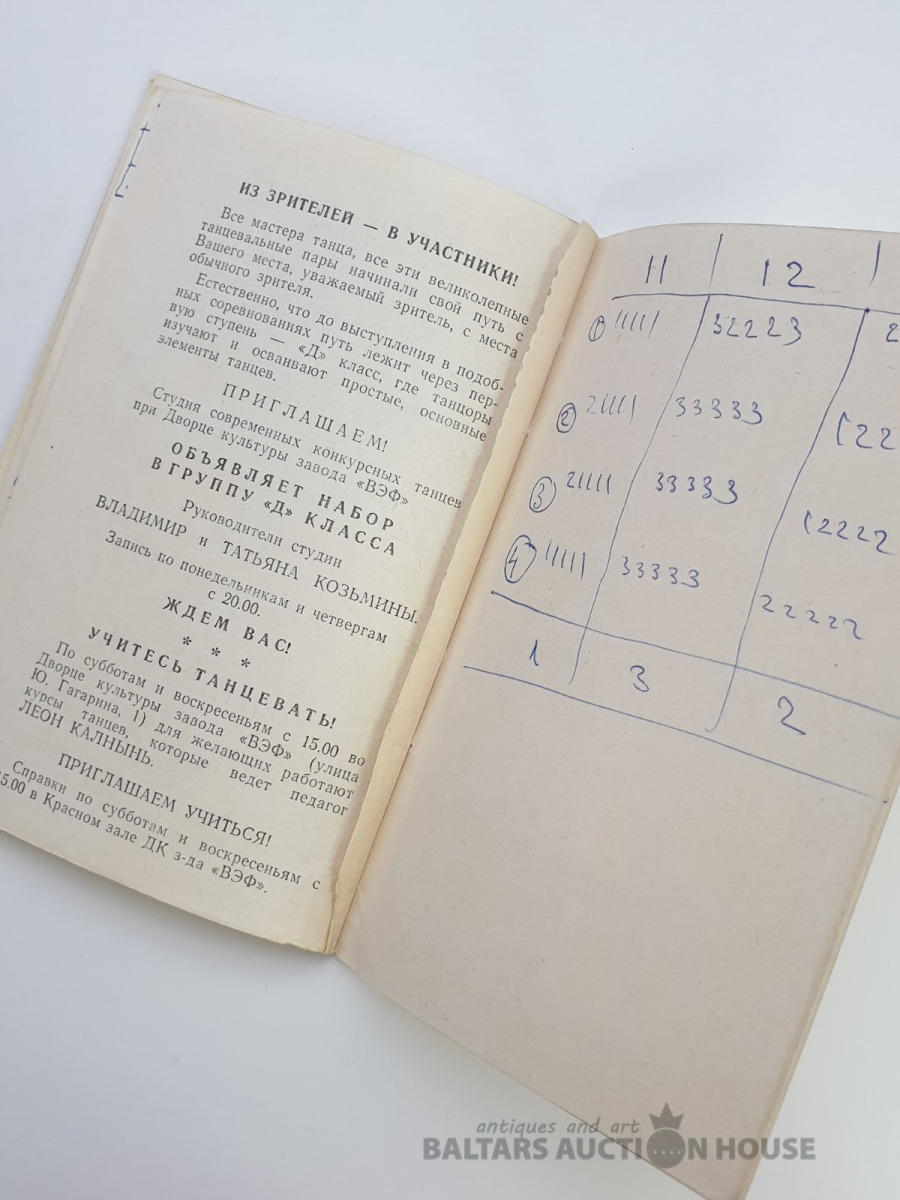 ИЗ ЗРИТЕЛЕЙ — В УЧАСТНИКИ!
Все мастера танца, все эти великолепные
танцевальные пары начинали свой путь с
Вашего места, уважаемый зритель, с места
обычного зрителя.
Естественно, что до выступления в подоб-
ных соревнованиях путь лежит через пер-
вую ступень — «Д» класс, где танцоры
изучают и осваивают простые, основные
элементы танцев.
ПРИГЛАШАЕМ!
Студия современных конкурсных танцев
при Дворце культуры завода «ВЭФ»
ОБЪЯВЛЯЕТ НАБОР
В ГРУППУ «Д» КЛАССА
Руководители студии
ВЛАДИМИР и ТАТЬЯНА КОЗЬМИНЫ.
Запись по понедельникам и четвергам
с 20.00.
ЖДЕМ ВАС!
* * *
УЧИТЕСЬ ТАНЦЕВАТЬ!
По субботам и воскресеньям с 15.00 во
Дворце культуры завода «ВЭФ» (улица
Ю. Гагарина, 1) для желающих работают
курсы танцев, которые ведет педагог
ЛЕОН КАЛНЫНЬ.
ПРИГЛАШАЕМ УЧИТЬСЯ!
Справки по субботам и воскресеньям с
15.00 в Красном зале ДК з-да «ВЭФ».
11 12
1 11111 32223 2
2 21111 33333 122
3 21111 33333 12222
4 11111 33333 22222
1 3 2
antiques and art
BALTARS AUCTION HOUSE